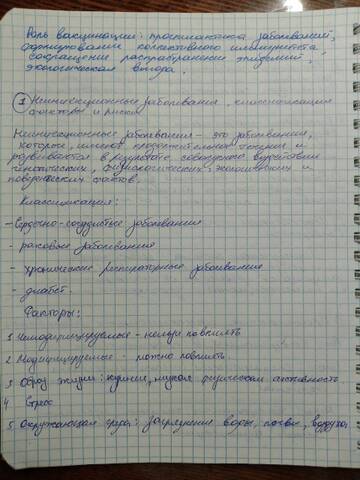 Роль вакцинации: профилактика заболеваний,
формировании коллективного иммунитета
сокращение распространение эпидемий,
экологическая выгода.
1 Неинфекционные заболевания, классификация
факторы и риски
Неинфекционные заболевания - это заболевания,
которые, имеют продолжительное течение и
развиваются в результате совокупного воздействия
генетических, физиологических, экологических и
поведенческих фактов.
Классификация:
- Сердечно-сосудистые заболевания
- раковые заболевания
- хронические респираторные заболевания
- диабет.
Факторы:
1 Немодифицируемые - нельзя повлиять
2 Модифицируемые - можно повлиять.
3 Образ жизни: курение, низкая физическая активность.
4 Стресс
5 Окружающая среда: Загрязнение воды, почвы, воздуха